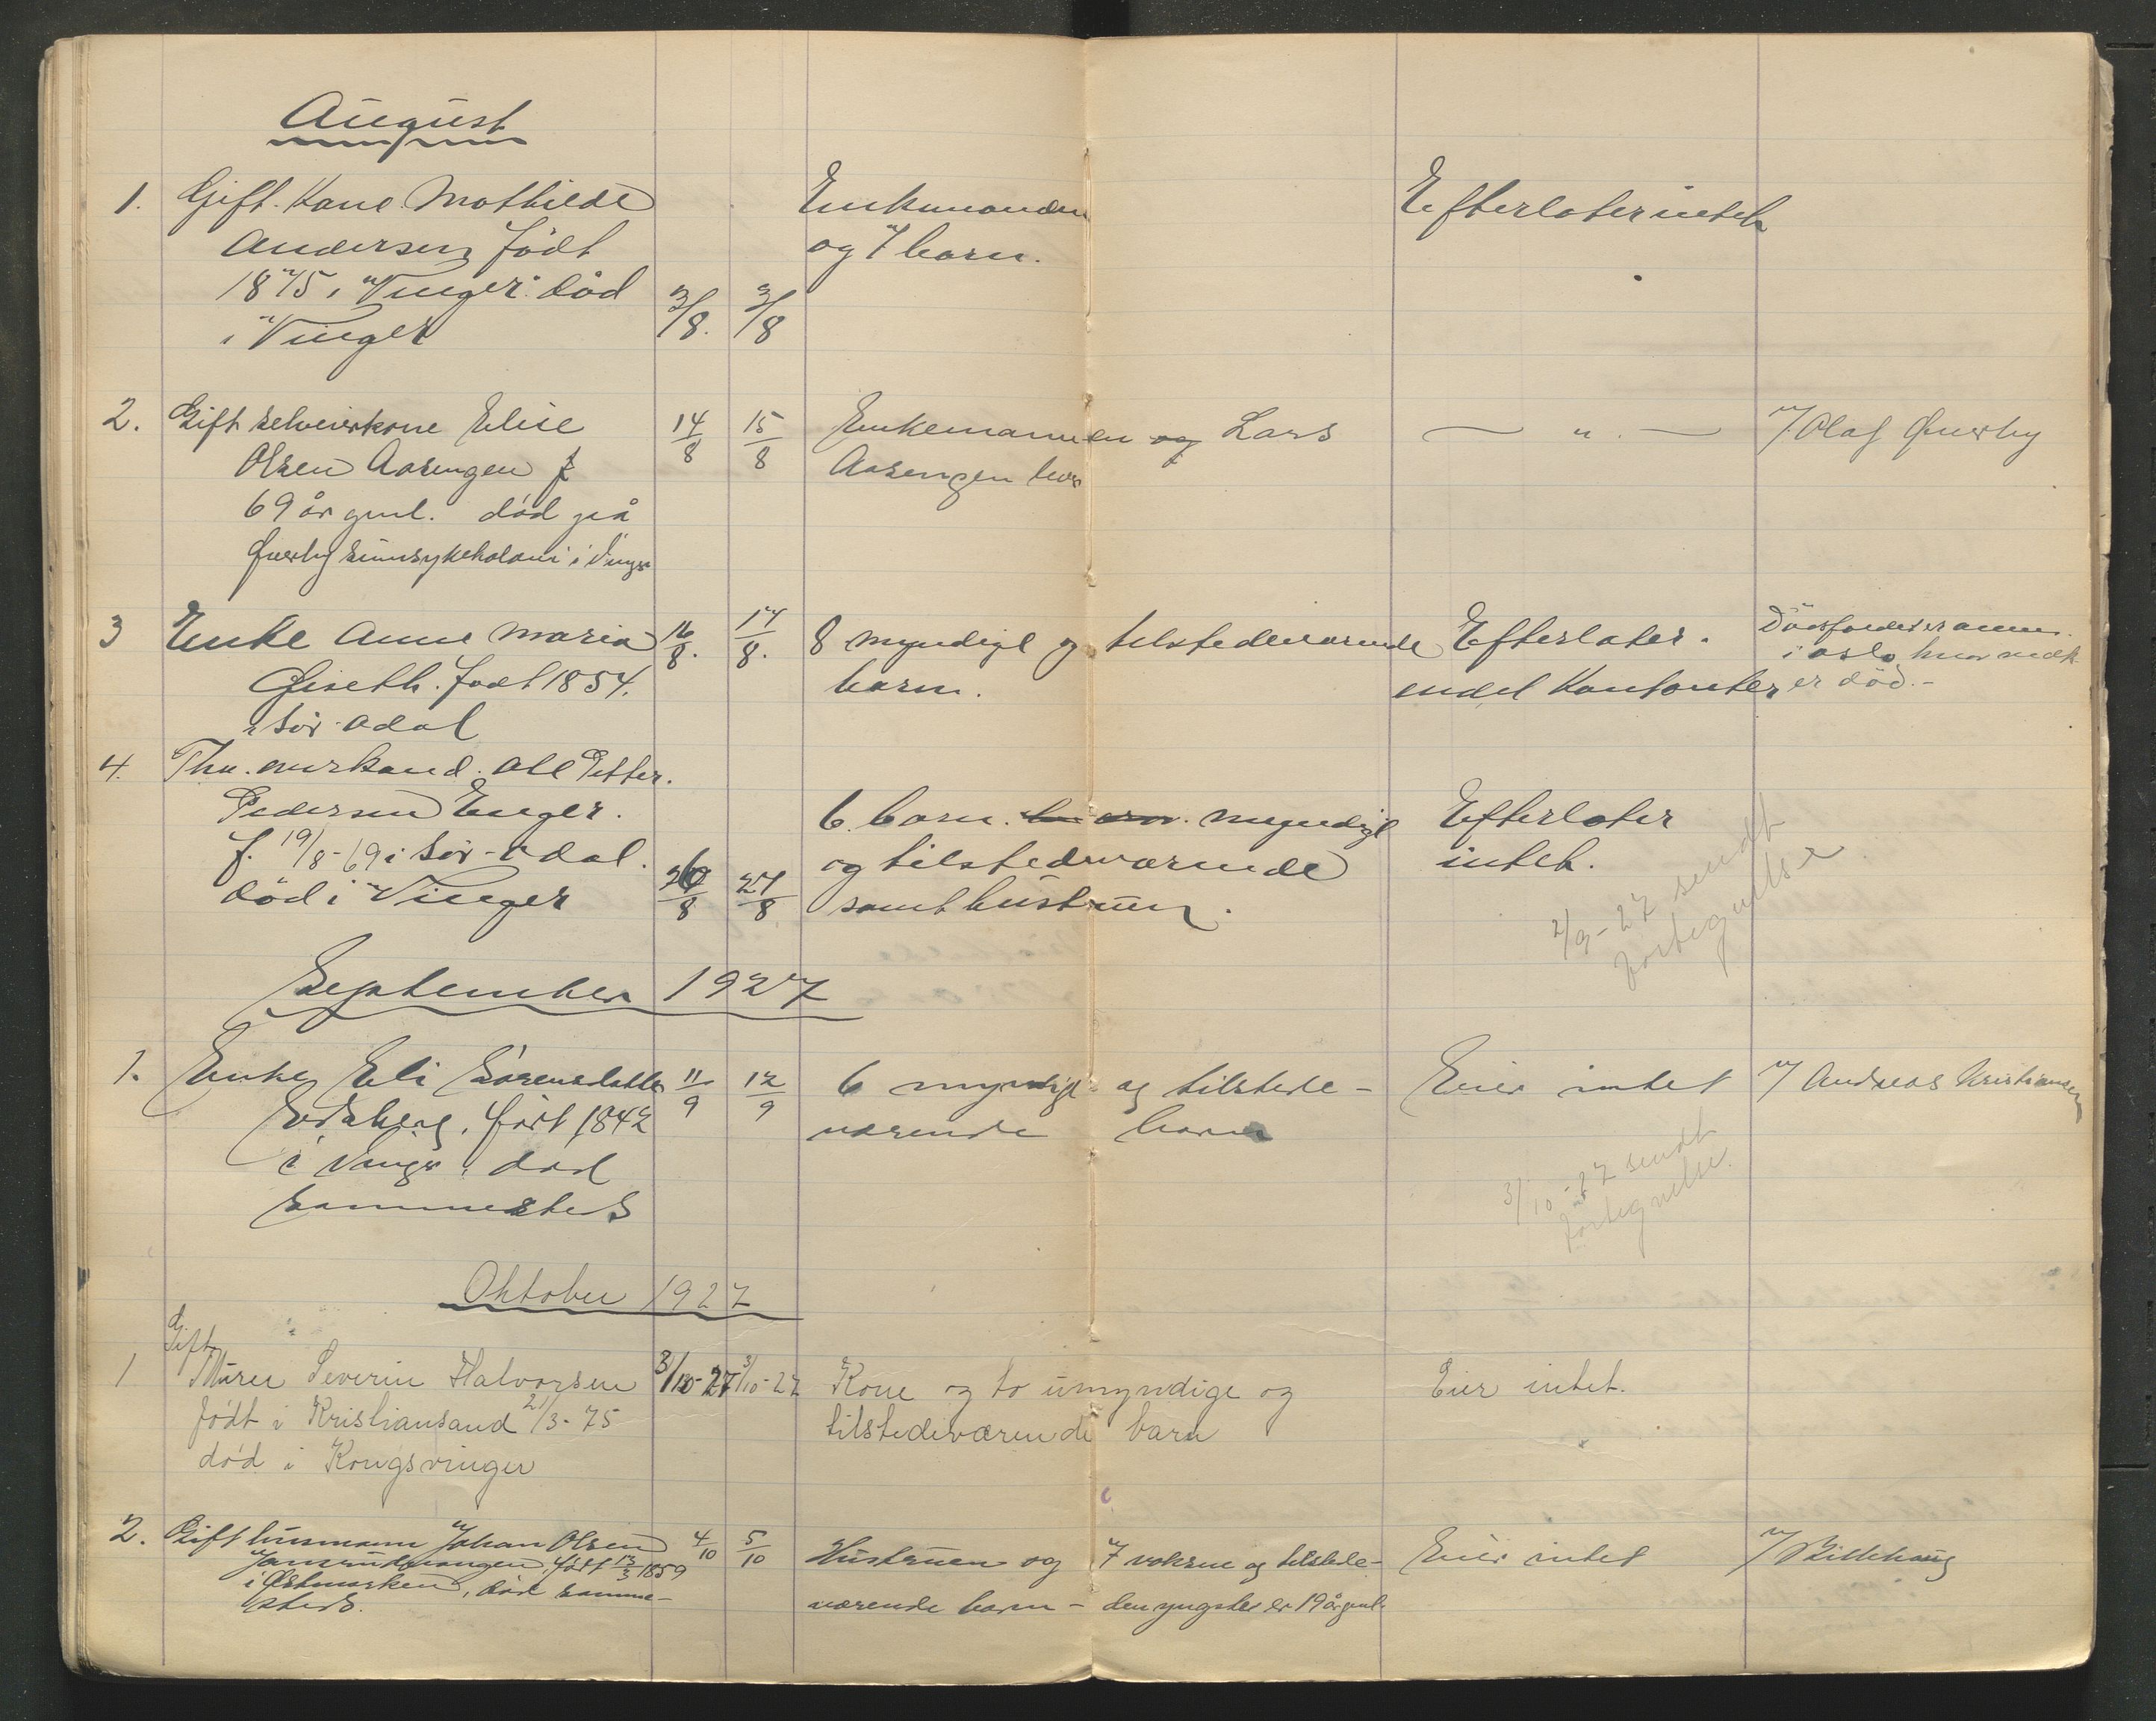 August
1. Gift. Kone. Mathilde Enkemanden Efterlater intet
Andersen født og 7 barn.
1875 i Vinger død 3/8. 3/8
i Vinger
2. Gift selveierkone Elise 14/8 15/8 Enkemannen og Lars — " — v/ Olaf Øverby
Olsen Aasengen f Aasengen lever
69 år gml. død på
Øverby sinnsykekoloni i Vinger
3 Enke Anne Maria 16/8. 17/8. 8 myndige og tilstedeværende Efterlater.
Giseth. født 1854. barn. endel Kontanter er død.-
i Sør-Odal i Oslo, hvor
4. Ole Petter.
Pedersen Enger. 6. barn. myndige Efterlater
f. 19/8-69 i Sør-Odal. og tilstedeværende intet.
død i Vinger 26/8 27/8 samt hustruen.
2/9-27 sendt
fortegnelse
September 1927
1. Enke Eli Sørensdatter 11/9 12/9 6 myndige og tilstede- Eier intet v/ Andreas Kristiansen
født 1842 værende barn
i Vinger, død
sammesteds
3/10-27 sendt
fortegnelse.
Oktober 1927
Gift
1 Murer Severin Halvorsen 3/10-27 3/10-27 Kone og to umyndige og Eier intet.
født i Kristiansand 21/3-75 tilstedeværende barn
død i Kongsvinger
2. Gift husmann Johan Olsen 4/10 5/10 Hustruen og 7 voksne og tilstede- Eier intet v/ Billehaug
født 13/3 1859 værende barn - den yngste er 19 år gml.
i Østmarken, død samme-
steds.